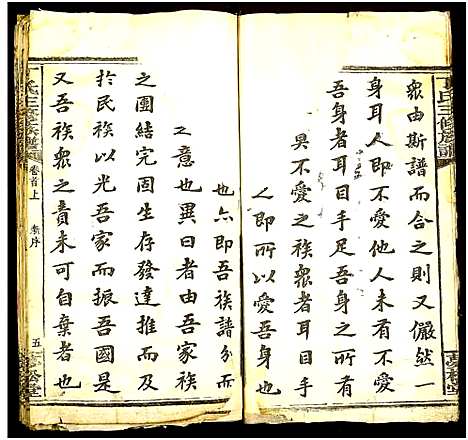 衆由斯譜而合之則又儼然一
身耳人即不愛人未有不愛
吾身者耳目手足吾身之所有
具不愛之族衆者耳目手
人即所以愛吾身
也亦即吾族譜分而
之意也異日者由吾家族
之團結完固生存發達推而及
於民族以光吾家而振吾國是
又吾族衆之責未可自棄者也
卷首上
新序
五
氏三修族譜